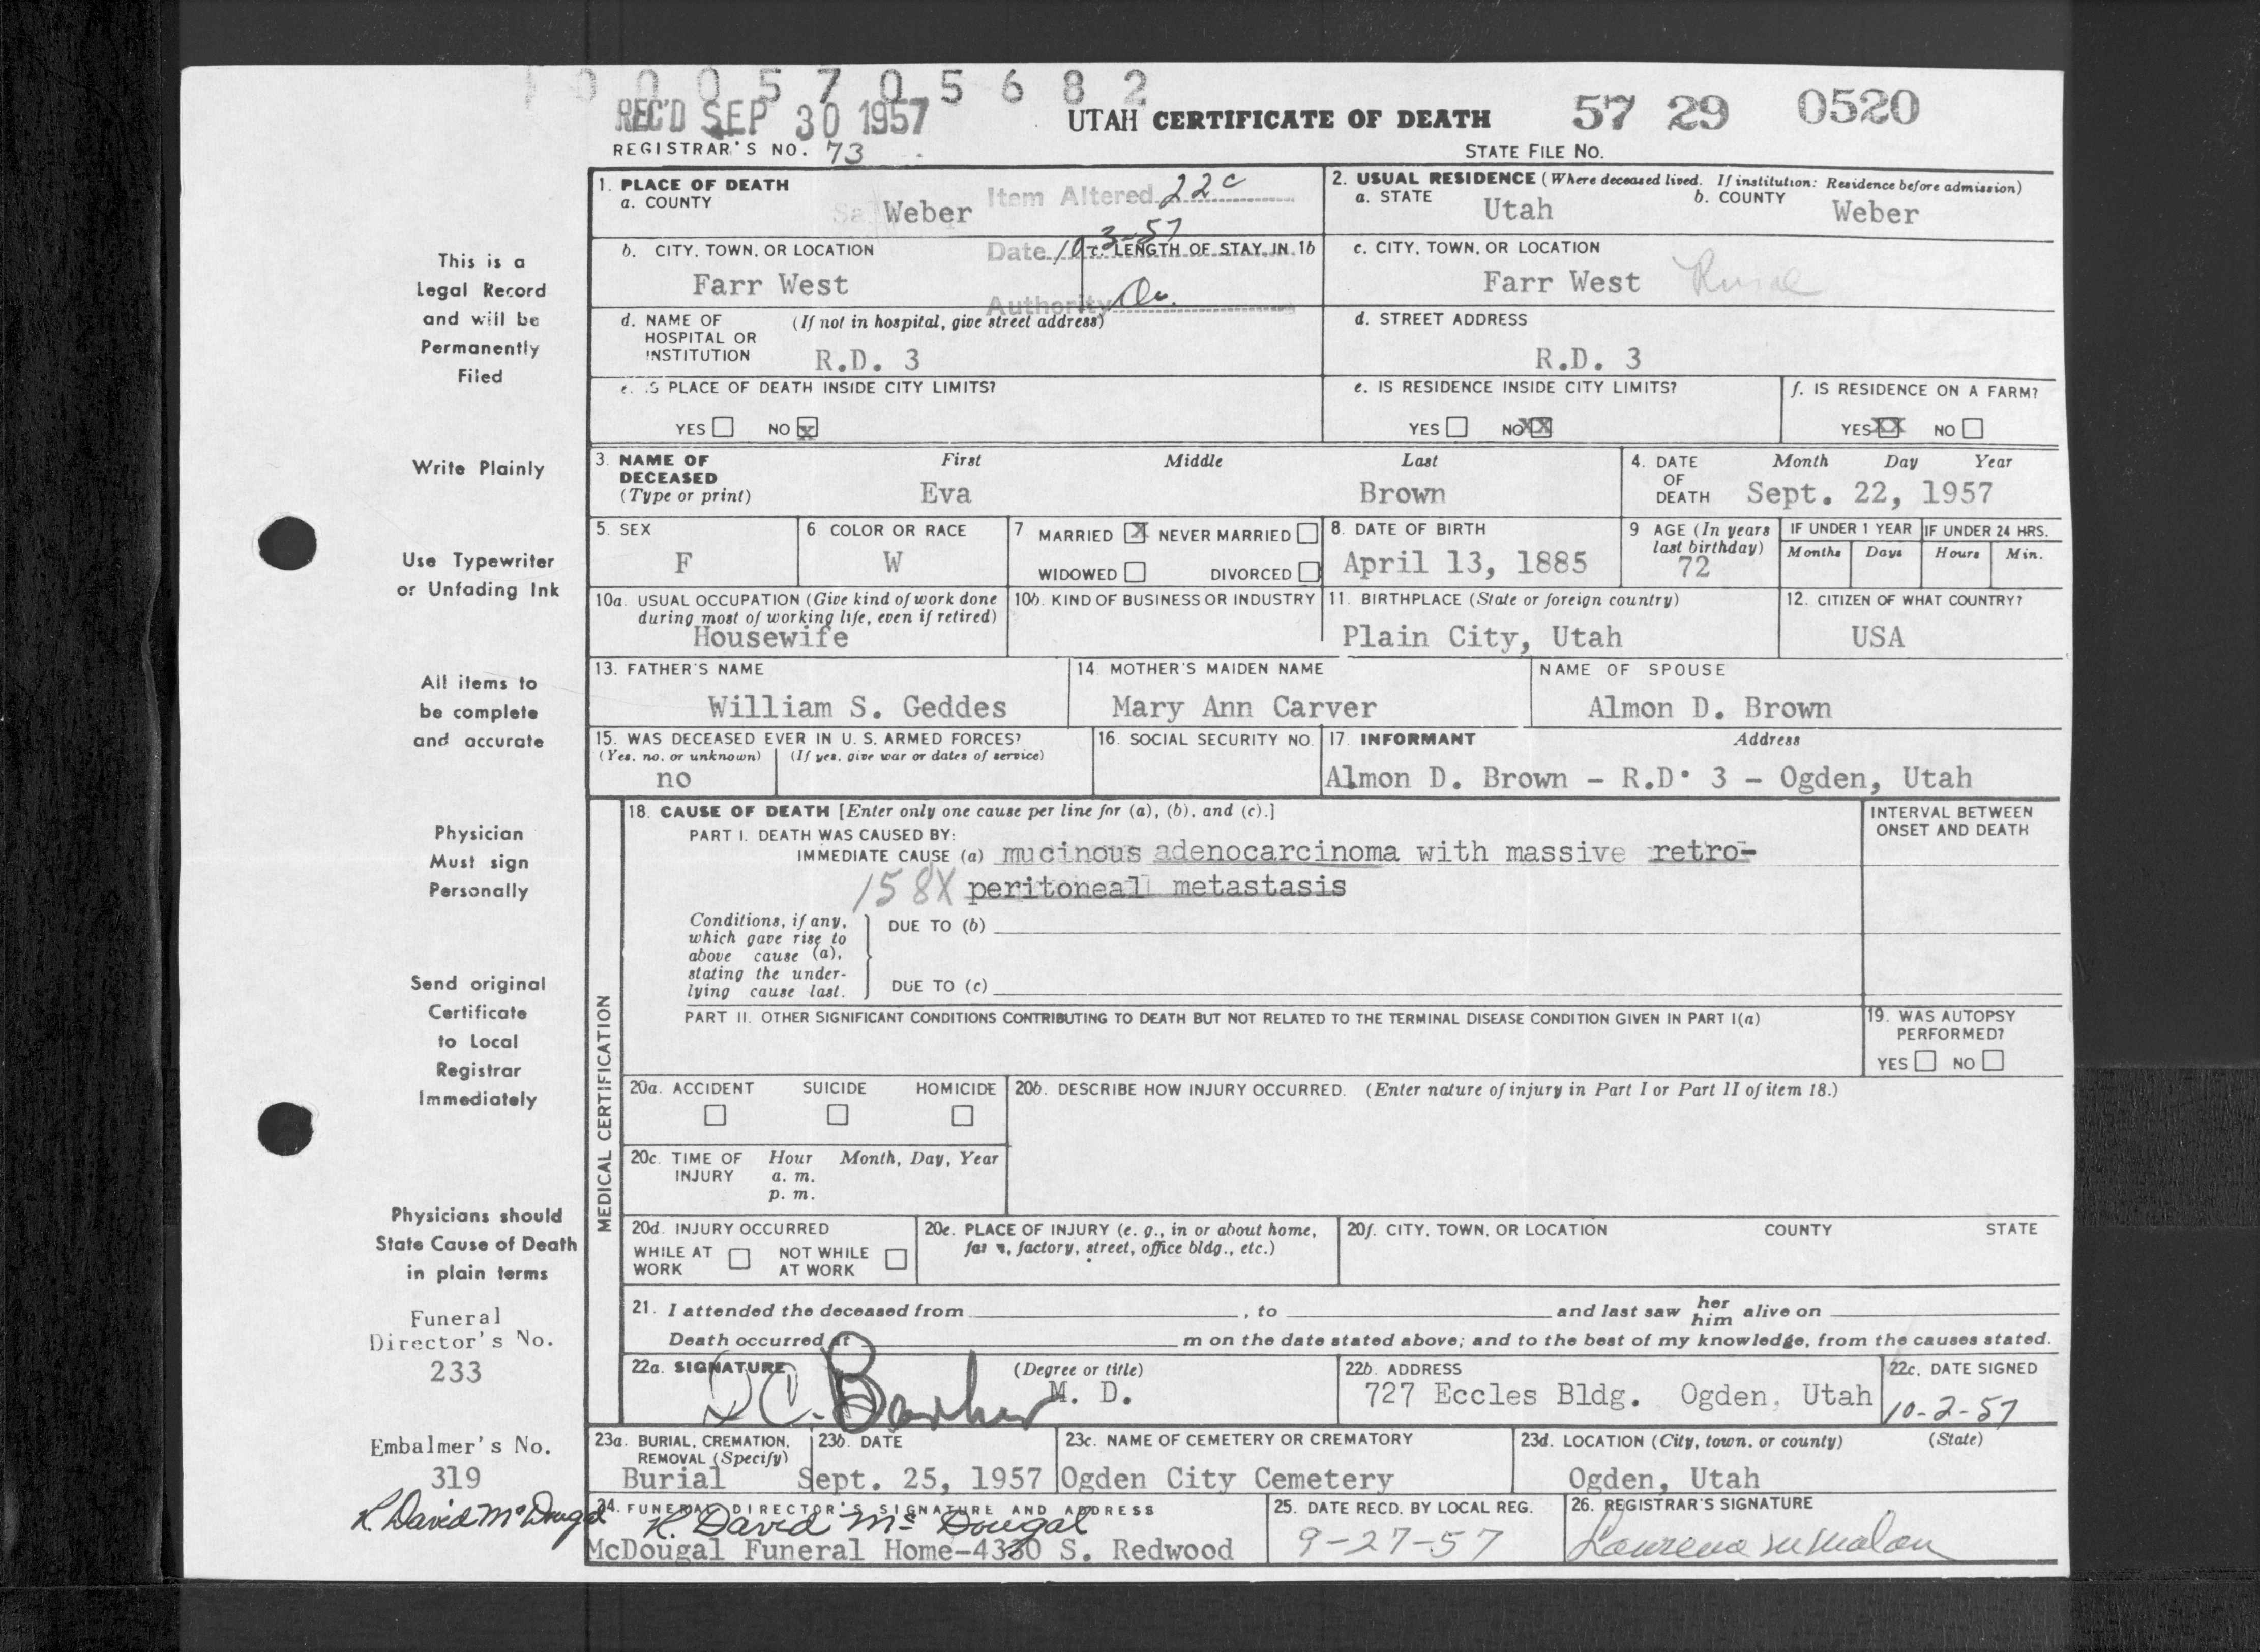 1 0 0 0 5 7 0 5 6 8 2
REC'D SEP 30 1957
UTAH CERTIFICATE OF DEATH
57 29 0520
REGISTRAR'S NO. 73
STATE FILE NO.
1. PLACE OF DEATH
a. COUNTY
Weber
Item Altered 22c
2. USUAL RESIDENCE (Where deceased lived. If institution: Residence before admission)
a. STATE
Utah
b. COUNTY
Weber
b. CITY, TOWN, OR LOCATION
Farr West
Date 10-3-57
c. LENGTH OF STAY IN 1b
Authority
c. CITY, TOWN, OR LOCATION
Farr West Rural
d. NAME OF HOSPITAL OR INSTITUTION
(If not in hospital, give street address)
R.D. 3
d. STREET ADDRESS
R.D. 3
e. IS PLACE OF DEATH INSIDE CITY LIMITS?
YES NO X
e. IS RESIDENCE INSIDE CITY LIMITS?
YES NO XX
f. IS RESIDENCE ON A FARM?
YES XX NO
3. NAME OF DECEASED
(Type or print)
First
Eva
Middle
Last
Brown
4. DATE OF DEATH
Month Day Year
Sept. 22, 1957
5. SEX
F
6 COLOR OR RACE
W
7 MARRIED X NEVER MARRIED
WIDOWED DIVORCED
8. DATE OF BIRTH
April 13, 1885
9 AGE (In years last birthday)
72
IF UNDER 1 YEAR
Months Days
IF UNDER 24 HRS.
Hours Min.
10a. USUAL OCCUPATION (Give kind of work done during most of working life, even if retired)
Housewife
10b. KIND OF BUSINESS OR INDUSTRY
11. BIRTHPLACE (State or foreign country)
Plain City, Utah
12. CITIZEN OF WHAT COUNTRY?
USA
13. FATHER'S NAME
William S. Geddes
14. MOTHER'S MAIDEN NAME
Mary Ann Carver
NAME OF SPOUSE
Almon D. Brown
15. WAS DECEASED EVER IN U. S. ARMED FORCES?
(Yes, no, or unknown)
(If yes, give war or dates of service)
no
16. SOCIAL SECURITY NO.
17. INFORMANT
Address
Almon D. Brown - R.D. 3 - Ogden, Utah
MEDICAL CERTIFICATION
18. CAUSE OF DEATH [Enter only one cause per line for (a), (b), and (c).]
INTERVAL BETWEEN ONSET AND DEATH
PART I. DEATH WAS CAUSED BY:
IMMEDIATE CAUSE (a) mucinous adenocarcinoma with massive retro-
158X peritoneal metastasis
Conditions, if any, which gave rise to above cause (a), stating the underlying cause last.
DUE TO (b)
DUE TO (c)
PART II. OTHER SIGNIFICANT CONDITIONS CONTRIBUTING TO DEATH BUT NOT RELATED TO THE TERMINAL DISEASE CONDITION GIVEN IN PART I(a)
19. WAS AUTOPSY PERFORMED?
YES NO
20a. ACCIDENT SUICIDE HOMICIDE
20b. DESCRIBE HOW INJURY OCCURRED. (Enter nature of injury in Part I or Part II of item 18.)
20c. TIME OF INJURY
Hour Month, Day, Year
a. m.
p. m.
20d. INJURY OCCURRED
WHILE AT WORK
NOT WHILE AT WORK
20e. PLACE OF INJURY (e. g., in or about home, farm, factory, street, office bldg., etc.)
20f. CITY, TOWN, OR LOCATION COUNTY STATE
21. I attended the deceased from , to and last saw her him alive on
Death occurred at m on the date stated above; and to the best of my knowledge, from the causes stated.
22a. SIGNATURE
Barker
(Degree or title)
M. D.
22b. ADDRESS
727 Eccles Bldg. Ogden, Utah
22c. DATE SIGNED
10-2-57
23a. BURIAL, CREMATION, REMOVAL (Specify)
Burial
23b. DATE
Sept. 25, 1957
23c. NAME OF CEMETERY OR CREMATORY
Ogden City Cemetery
23d. LOCATION (City, town, or county) (State)
Ogden, Utah
24. FUNERAL DIRECTOR'S SIGNATURE AND ADDRESS
R. David McDougal
McDougal Funeral Home-4330 S. Redwood
25. DATE RECD. BY LOCAL REG.
9-27-57
26. REGISTRAR'S SIGNATURE
This is a
Legal Record
and will be
Permanently
Filed
Write Plainly
Use Typewriter
or Unfading Ink
All items to
be complete
and accurate
Physician
Must sign
Personally
Send original
Certificate
to Local
Registrar
Immediately
Physicians should
State Cause of Death
in plain terms
Funeral
Director's No.
233
Embalmer's No.
319
R. David McDougal